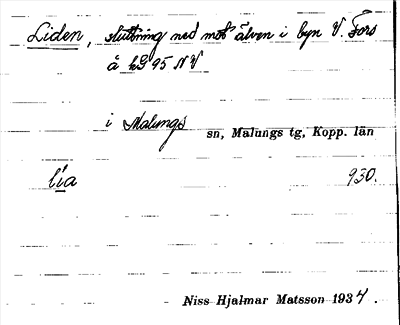 Liden, sluttning ned mot älven i byn V. Fors
å kS 95 NV
i Malungs sn, Malungs tg, Kopp. län
lía 930.
Niss Hjalmar Matsson 1934.